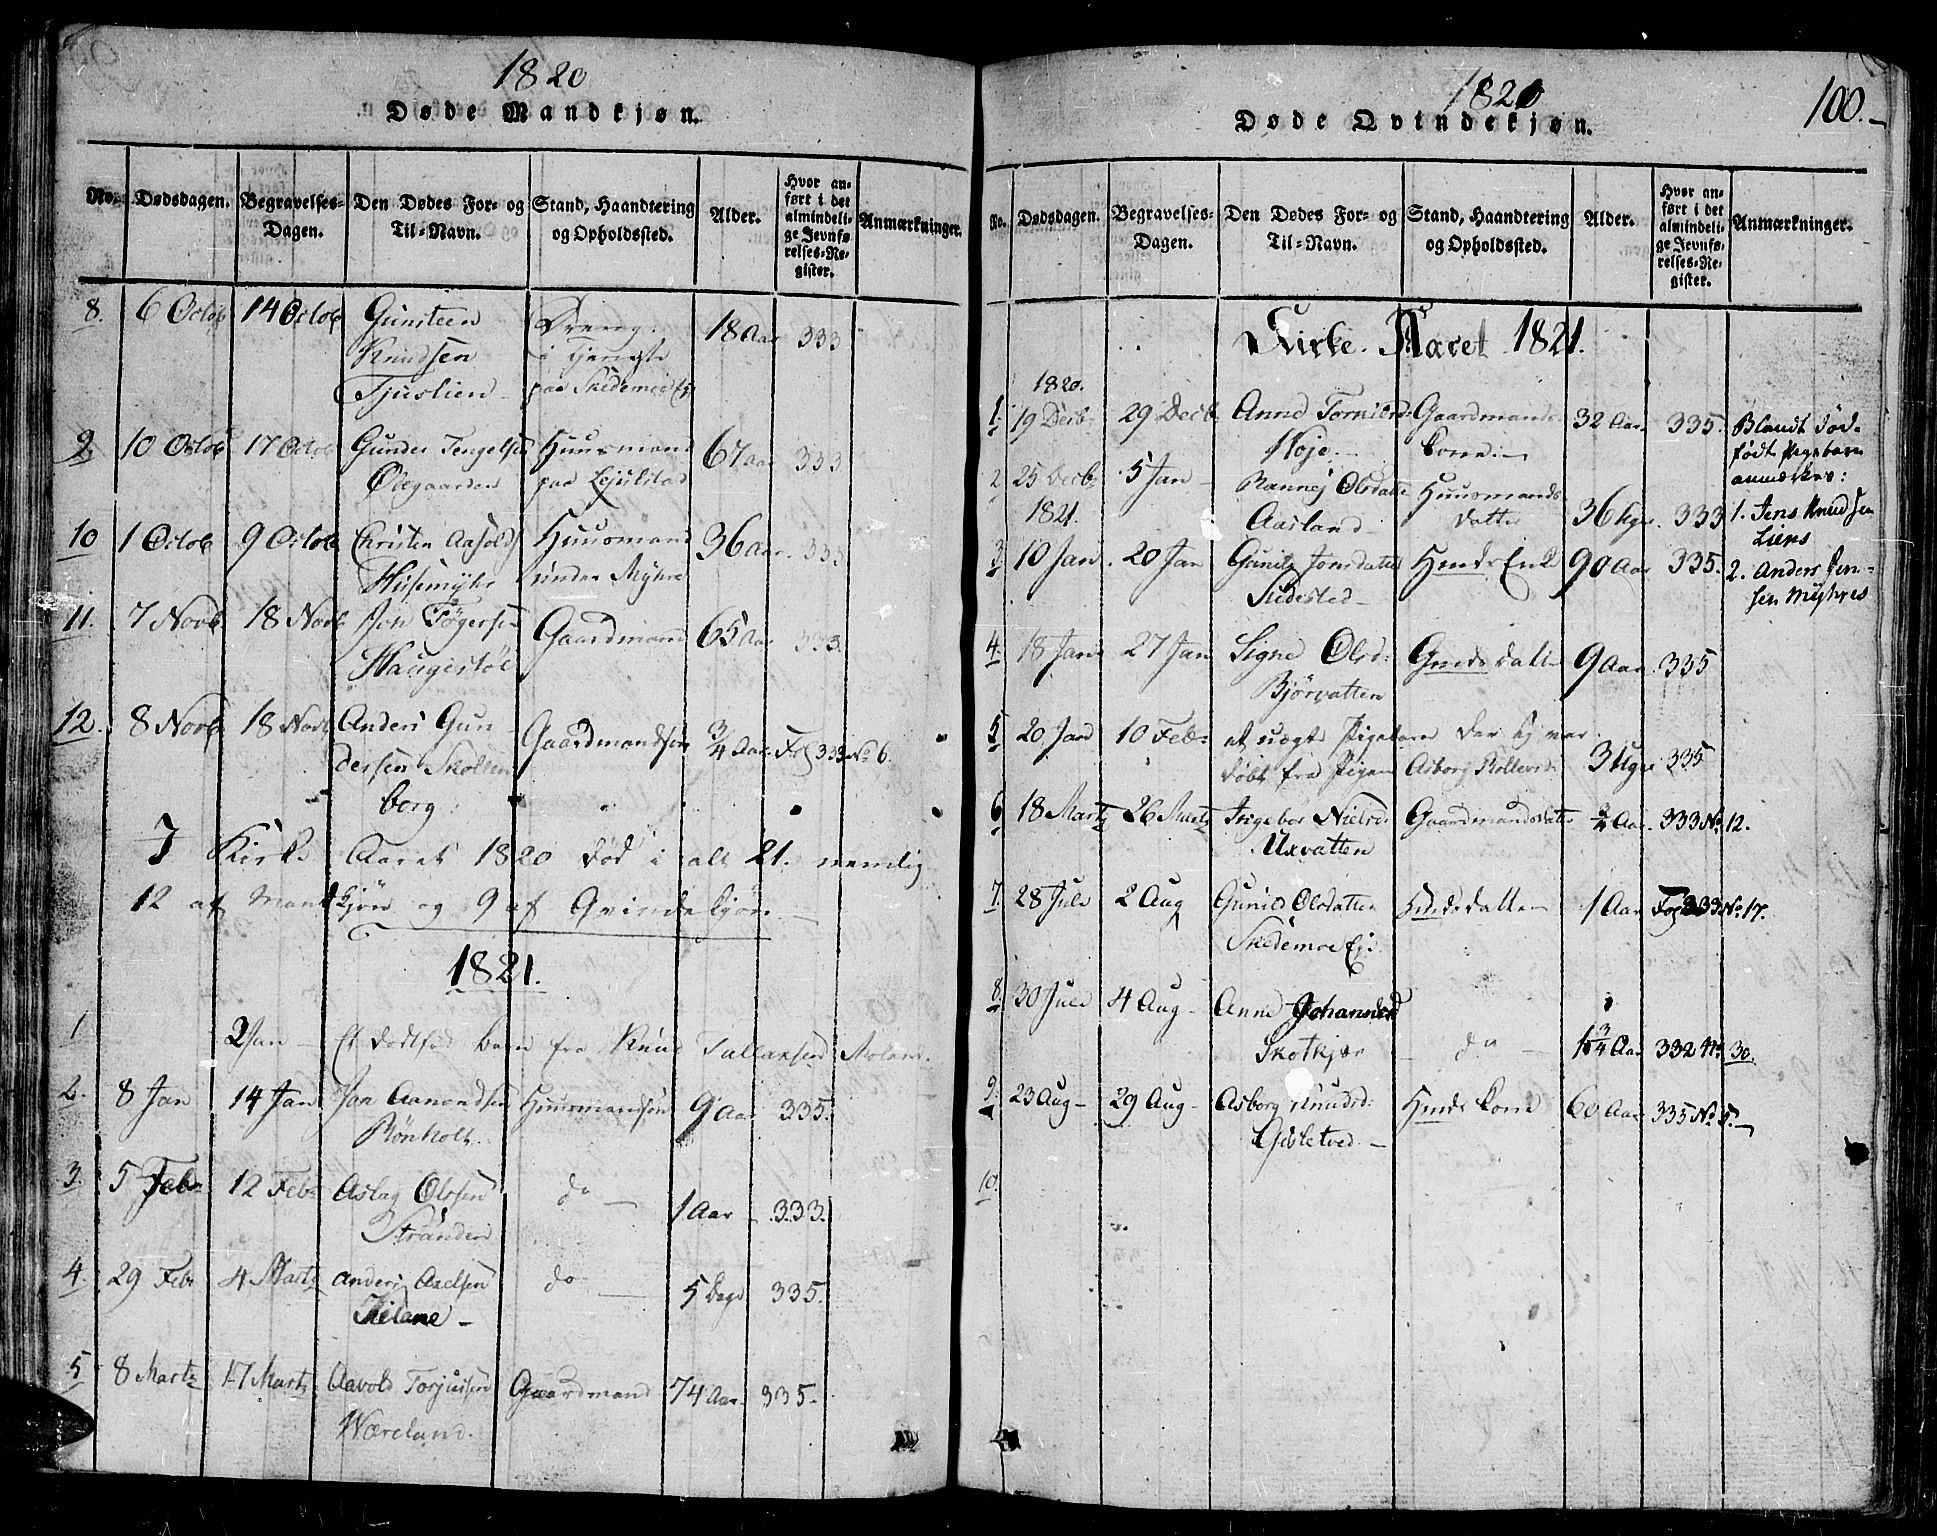 1820
Døde Mandkjøn.
No. Dødsdagen. Begravelses-Dagen. Den Dødes For- og Til-Navn. Stand, Haandtering og Opholdssted. Alder. Hvor anført i det almindelige Jevnførelses-Register. Anmærkninger.
8. 6 Octob 14 Octob Gunsteen Dreng 18 Aar 333
Knudsen i Tjeneste
Tjuslien paa Skedemoe
9 10 Octob 17 Octob Gunder Tengelsen Huusmand 67 aar 333
Ødegaarden paa
10 1 Octob 9 Octob Christen Huusmand 36 aar. 333
Husemyhr under Myhre
11. 7 Novb 18 Novb Jon Tögersen Gaardmand 65 Aar 333.
Haugestøl
12. 8 Novb 18 Novb Anders Gun Gaardmandsøn 3/4 Aar Fol 333 No 6.
dersen Skolten
borg.
I Kirke Aaret 1820 død i alt 21. nemlig
12 af Mandkjøn og 9 af Qvindekjøn.
1821.
1 2 Jan Et dödfød barn fra Knud Tallaksen
2. 8 Jan 14 Jan Jon Aanondsen Huusmandsøn 9 Aar 335.
Rönholt.
3. 5 Feb 12 Feb Aslag Olssen do 1 Aar 333.
Stranden
4. 29 Feb 4 Martz Anders Axelsen do 5 Dage 335.
Kilane
5 8 Martz 17 Martz Aavold Torjussen Gaardmand 74 Aar. 335.
Wæreland.
1820
100.
Døde Qvindekjøn.
No. Dødsdagen. Begravelses-Dagen. Den Dødes For- og Til-Navn. Stand, Haandtering og Opholdssted. Alder. Hvor anført i det almindelige Jevnførelses-Register. Anmærkninger.
Kirke Aaret 1821.
1820.
1 19 Decb 29 Decb Anne Gaardmands 32 Aar 335. Blandt död-
kone födt Pigebarn
2 25 Decb 5 Jan Rannej Olsdatter Huusmands anmærkes:
1821. Aasland datter 36 Uger. 333 1. Jens Knudsen
Liens
3 10 Jan 20 Jan Gunild Jonsdatter Hmds Enke 90 Aar 335. 2. Anders Jen-
sen Myhres
4. 18 Jan 27 Jan Signe Olsd: Gmds datter 9 Aar 335
Bjørvatten
5 20 Jan 10 Feb: et uægte Pigebarn der ej var
døbt fra Pigen Asborg Rollevsd: 3 Uger 335
6 18 Martz 26 Martz Ingebor Nielsd: Gaardmandsdatter 3/4 Aar. 333 No 12.
Uxvatten
7. 28 Jule 2 Aug Gunild Olsdatter Hmds datter 1 Aar Fol 333 No. 17.
Skedemoe Eje
8. 30 Jule 4 Aug Anne Johannesd
Skotkjær do 1 3/4 Aar 332 No 30.
9. 23 Aug 29 Aug Asborg Knudsd: Hmds kone 60 Aar 335 No. 5.
10.